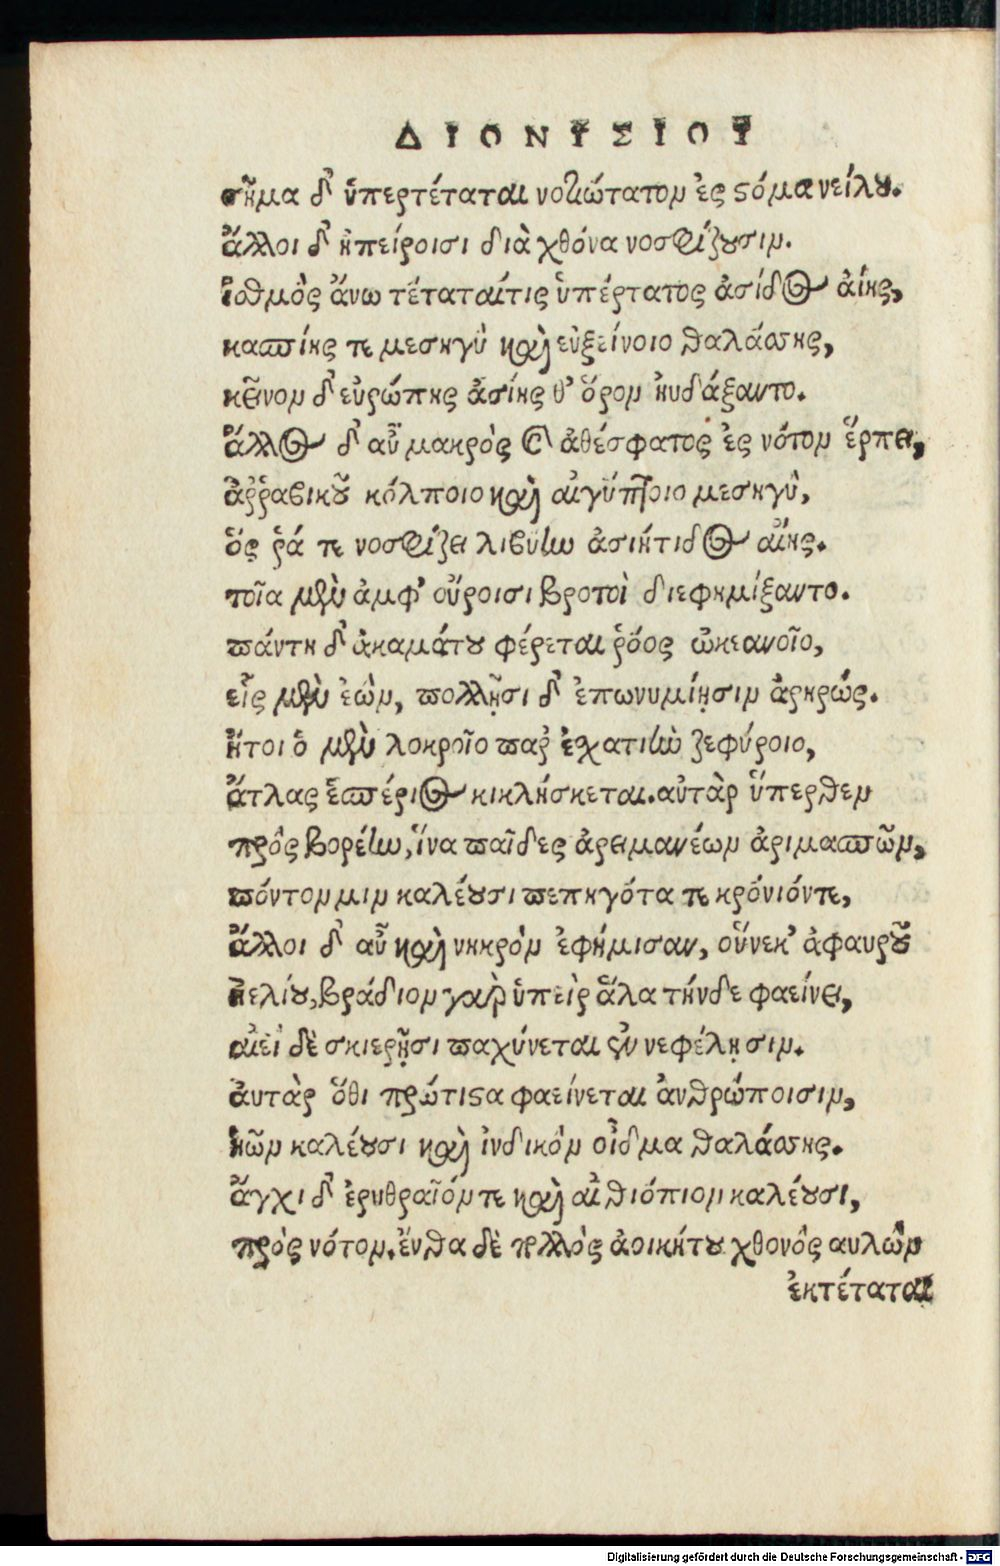 ΔΙΟΝΥΣΙΟΥ
σῆμα δ' ὑπερτέταται νοτιώτατον ἐς στόμα νείλου.
ἄλλοι δ' ἠπείροισι διὰ χθόνα νοσφίζουσιν.
ἰσθμὸς ἄνω τέταταίτις ὑπέρτατος ἀσίδος ἀίης,
κασπίης τε μεσηγὺ καὶ εὐξείνοιο θαλάσσης,
κεῖνον δ' εὐρώπης ἀσίης θ' ὅρον ηὐδάξαντο.
ἄλλος δ' αὖ μακρὸς καὶ ἀθέσφατος ἐς νότον ἕρπει,
ἀῤῥαβικοῦ κόλποιο καὶ αἰγύπτοιο μεσηγὺ,
ὅς ῥά τε νοσφίζει λιβύην ἀσιήτιδος αἴης.
τοῖα μὲν ἀμφ' οὔροισι βροτοὶ διεφημίξαντο.
πάντη δ' ἀκαμάτου φέρεται ῥόος ὠκεανοῖο,
εἷς μὲν ἐὼν, πολλῇσι δ' ἐπωνυμίῃσιν ἀρηρώς.
ἤτοι ὁ μὲν λοκροῖο παρ' ἐχατιὴν ζεφύροιο,
ἄτλας ἑσπέριος κικλήσκεται. αὐτὰρ ὕπερθεν
πρὸς βορέην, ἵνα παῖδες ἀρειμανέων ἀριμασπῶν,
πόντον μιν καλέουσι πεπηγότα τε κρόνιόντε,
ἄλλοι δ' αὖ καὶ νηκρὸν ἐφήμισαν, οὕνεκ' ἀφαυροῦ
ἠελίου, βράδιον γὰρ ὑπεὶρ ἅλα τήνδε φαείνει,
αἰεὶ δὲ σκιερῇσι παχύνεται ἐν νεφέλῃσιν.
ἀυτὰρ ὅθι πρώτιστα φαείνεται ἀνθρώποισιν,
ἠῶν καλέουσι καὶ ἰνδικὸν οἶδμα θαλάσσης.
ἄγχι δ' ἐρυθραῖόν τε καὶ αἰθιόπιον καλέουσι,
πρὸς νότον. ἔνθα δὲ πολλὸς ἀοικήτου χθονὸς αυλὼν
ἐκτέταται
Digitalisierung gefördert durch die Deutsche Forschungsgemeinschaft - DFG